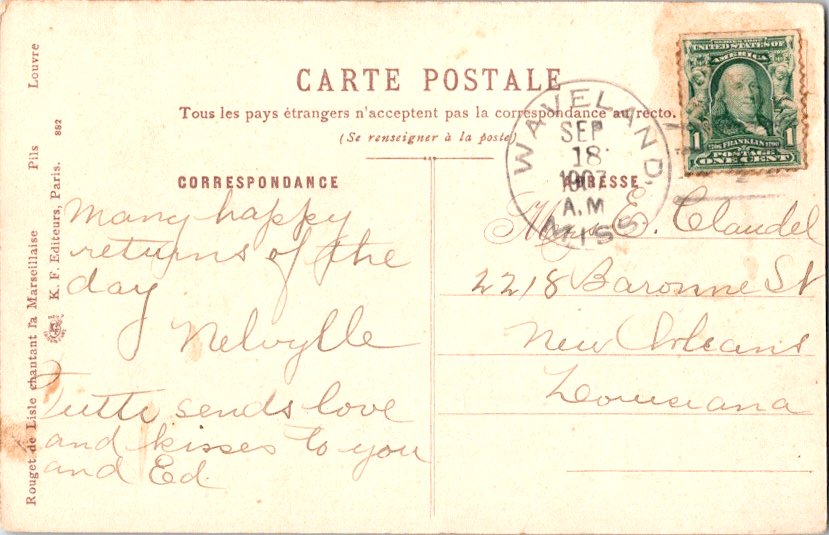 CARTE POSTALE
Tous les pays étrangers n'acceptent pas la correspondance au recto.
(Se renseigner à la poste)
CORRESPONDANCE
ADRESSE
Many happy
returns of the
day
Nelvylle
Tutti sends love
and kisses to you
and Ed.
WAVELAND, MISS.
SEP
18
1907
A.M
UNITED STATES OF
AMERICA
1 FRANKLIN 1
POSTAGE
ONE CENT
Mrs. E. Claudel
2218 Baronne St
New Orleans
Louisiana
Rouget de Lisle chantant la Marseillaise Pils Louvre
K. F. Editeurs, Paris. 882